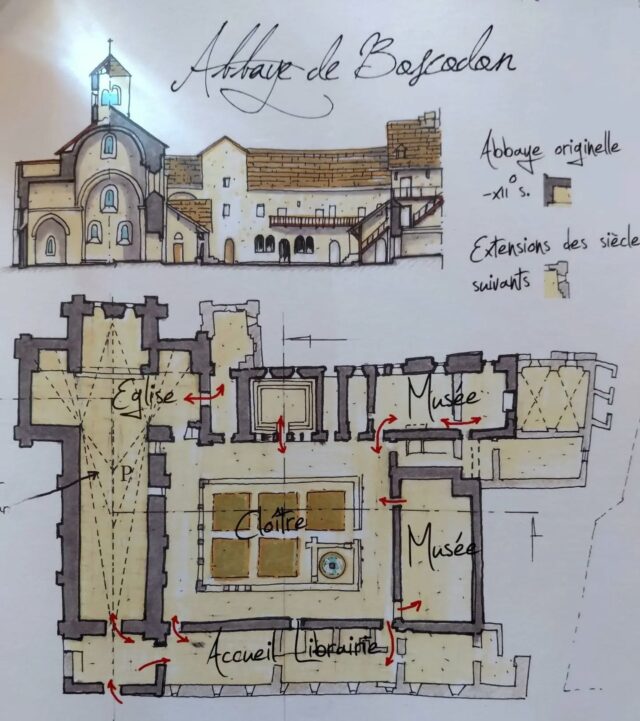 Abbaye de Boscodon
Abbaye originelle
-XII° s.
Extensions des siècle
suivants
Eglise
Musée
P
Cloître
Musée
Accueil Librairie